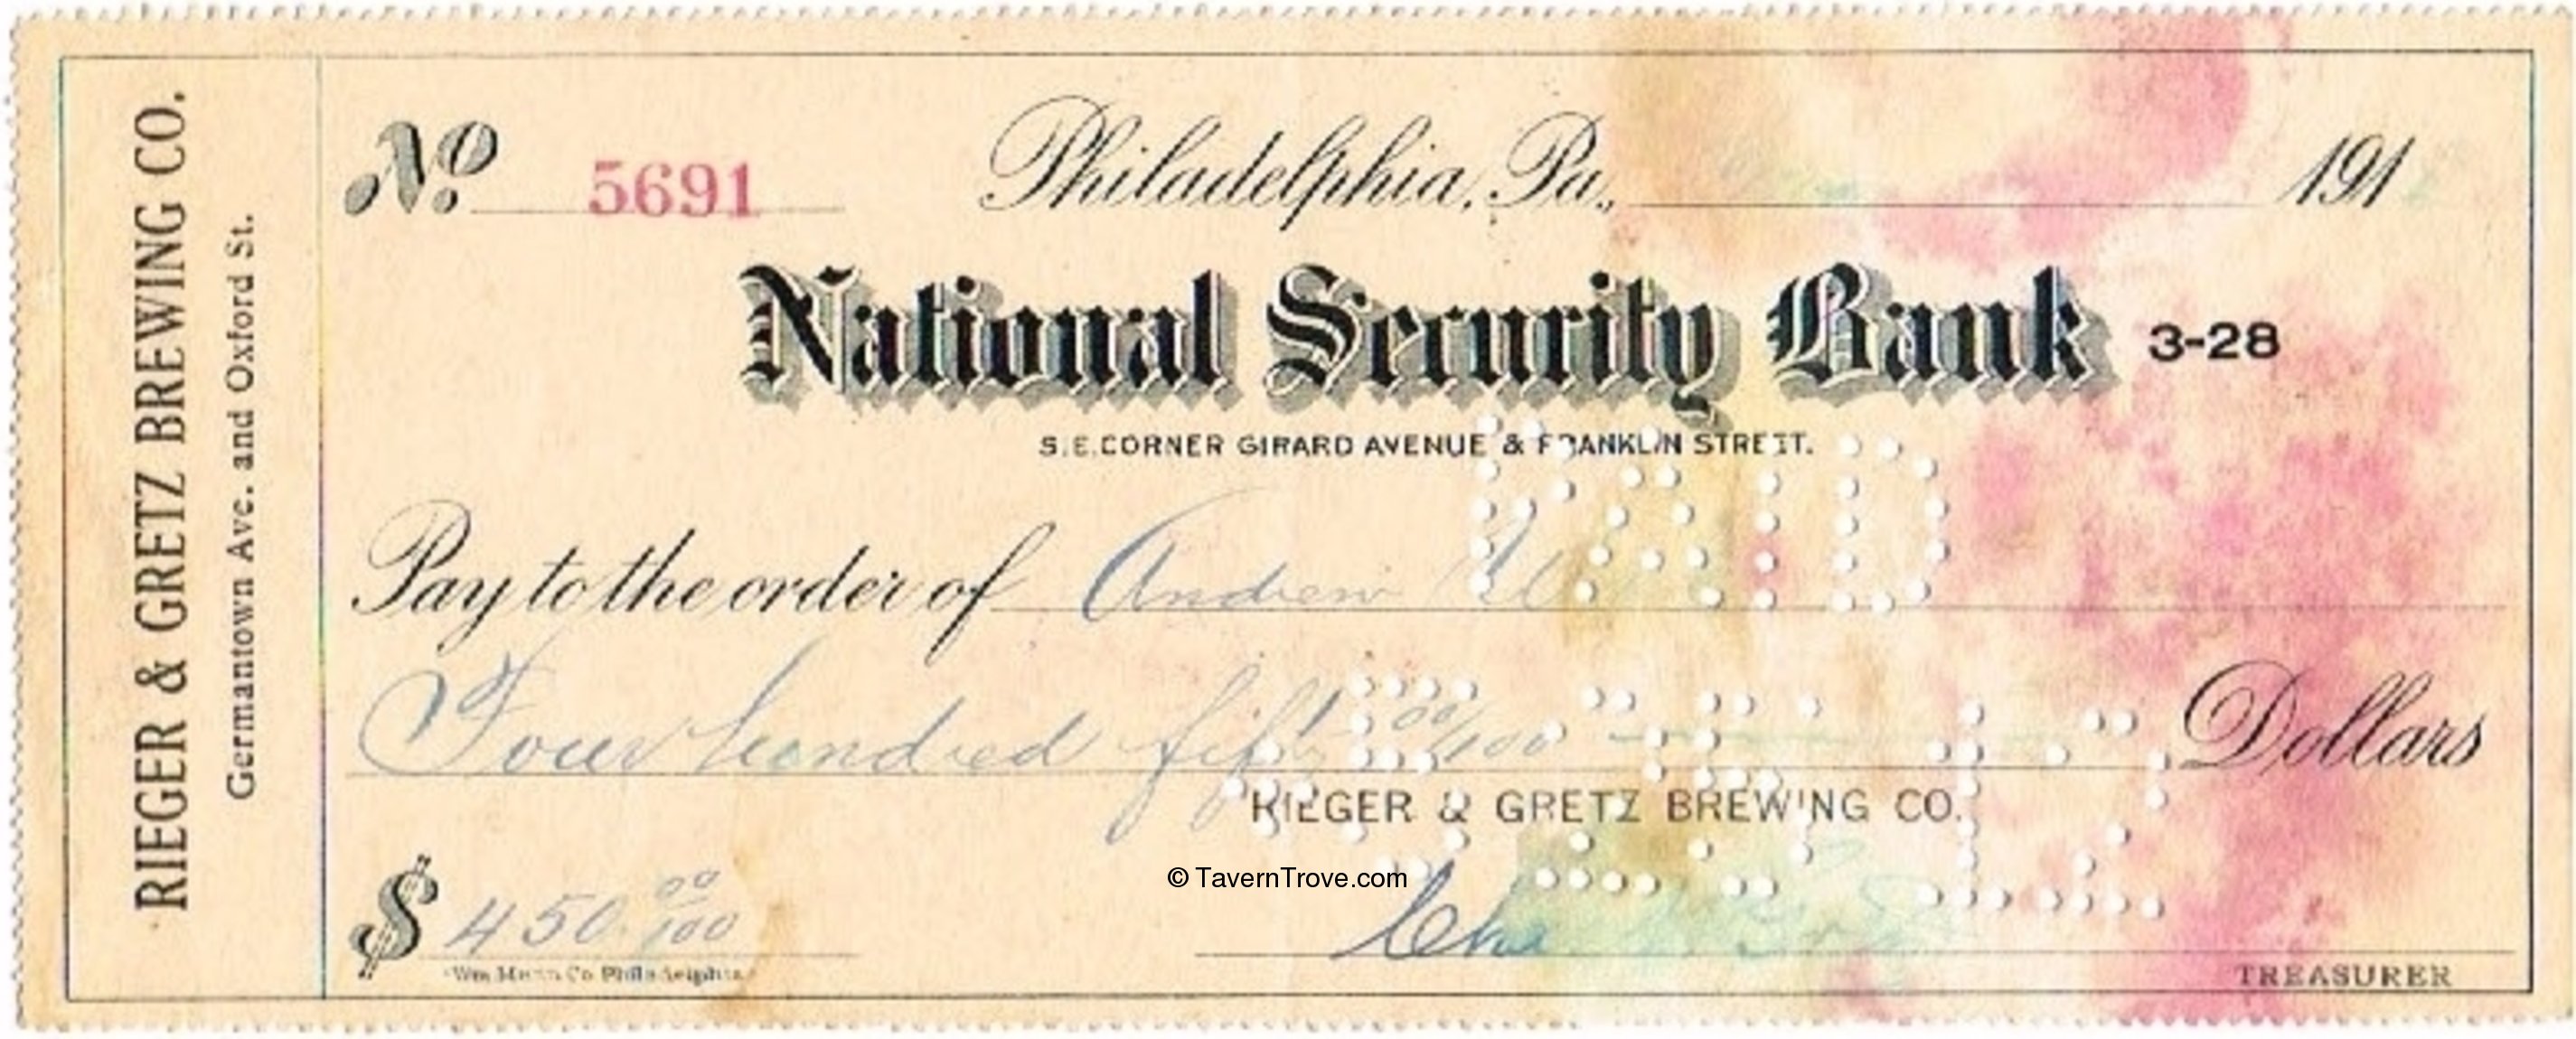 RIEGER & GRETZ BREWING CO.
Germantown Ave. and Oxford St.
No. 5691 Philadelphia, Pa., 191
National Security Bank 3-28
S.E. CORNER GIRARD AVENUE & FRANKLIN STREET.
PAID
Pay to the order of Andrew
Four hundred fifty 00/100 Dollars
RIEGER & GRETZ BREWING CO.
© TavernTrove.com
$ 450.00/100
Wm. Mann Co. Philadelphia
TREASURER